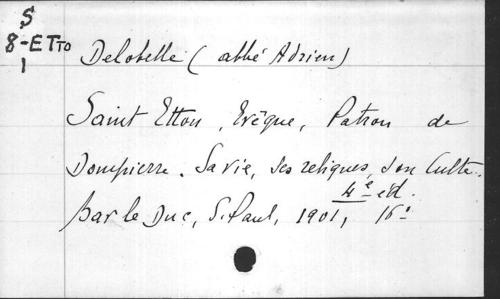 S
8-ETTO
1
Delobelle (abbé Adrien)
Saint Etton, Evêque, Patron de
Dompierre. Sa vie, ses reliques, son Culte.
4e éd.
Bar le Duc, S. Paul, 1901, 16°